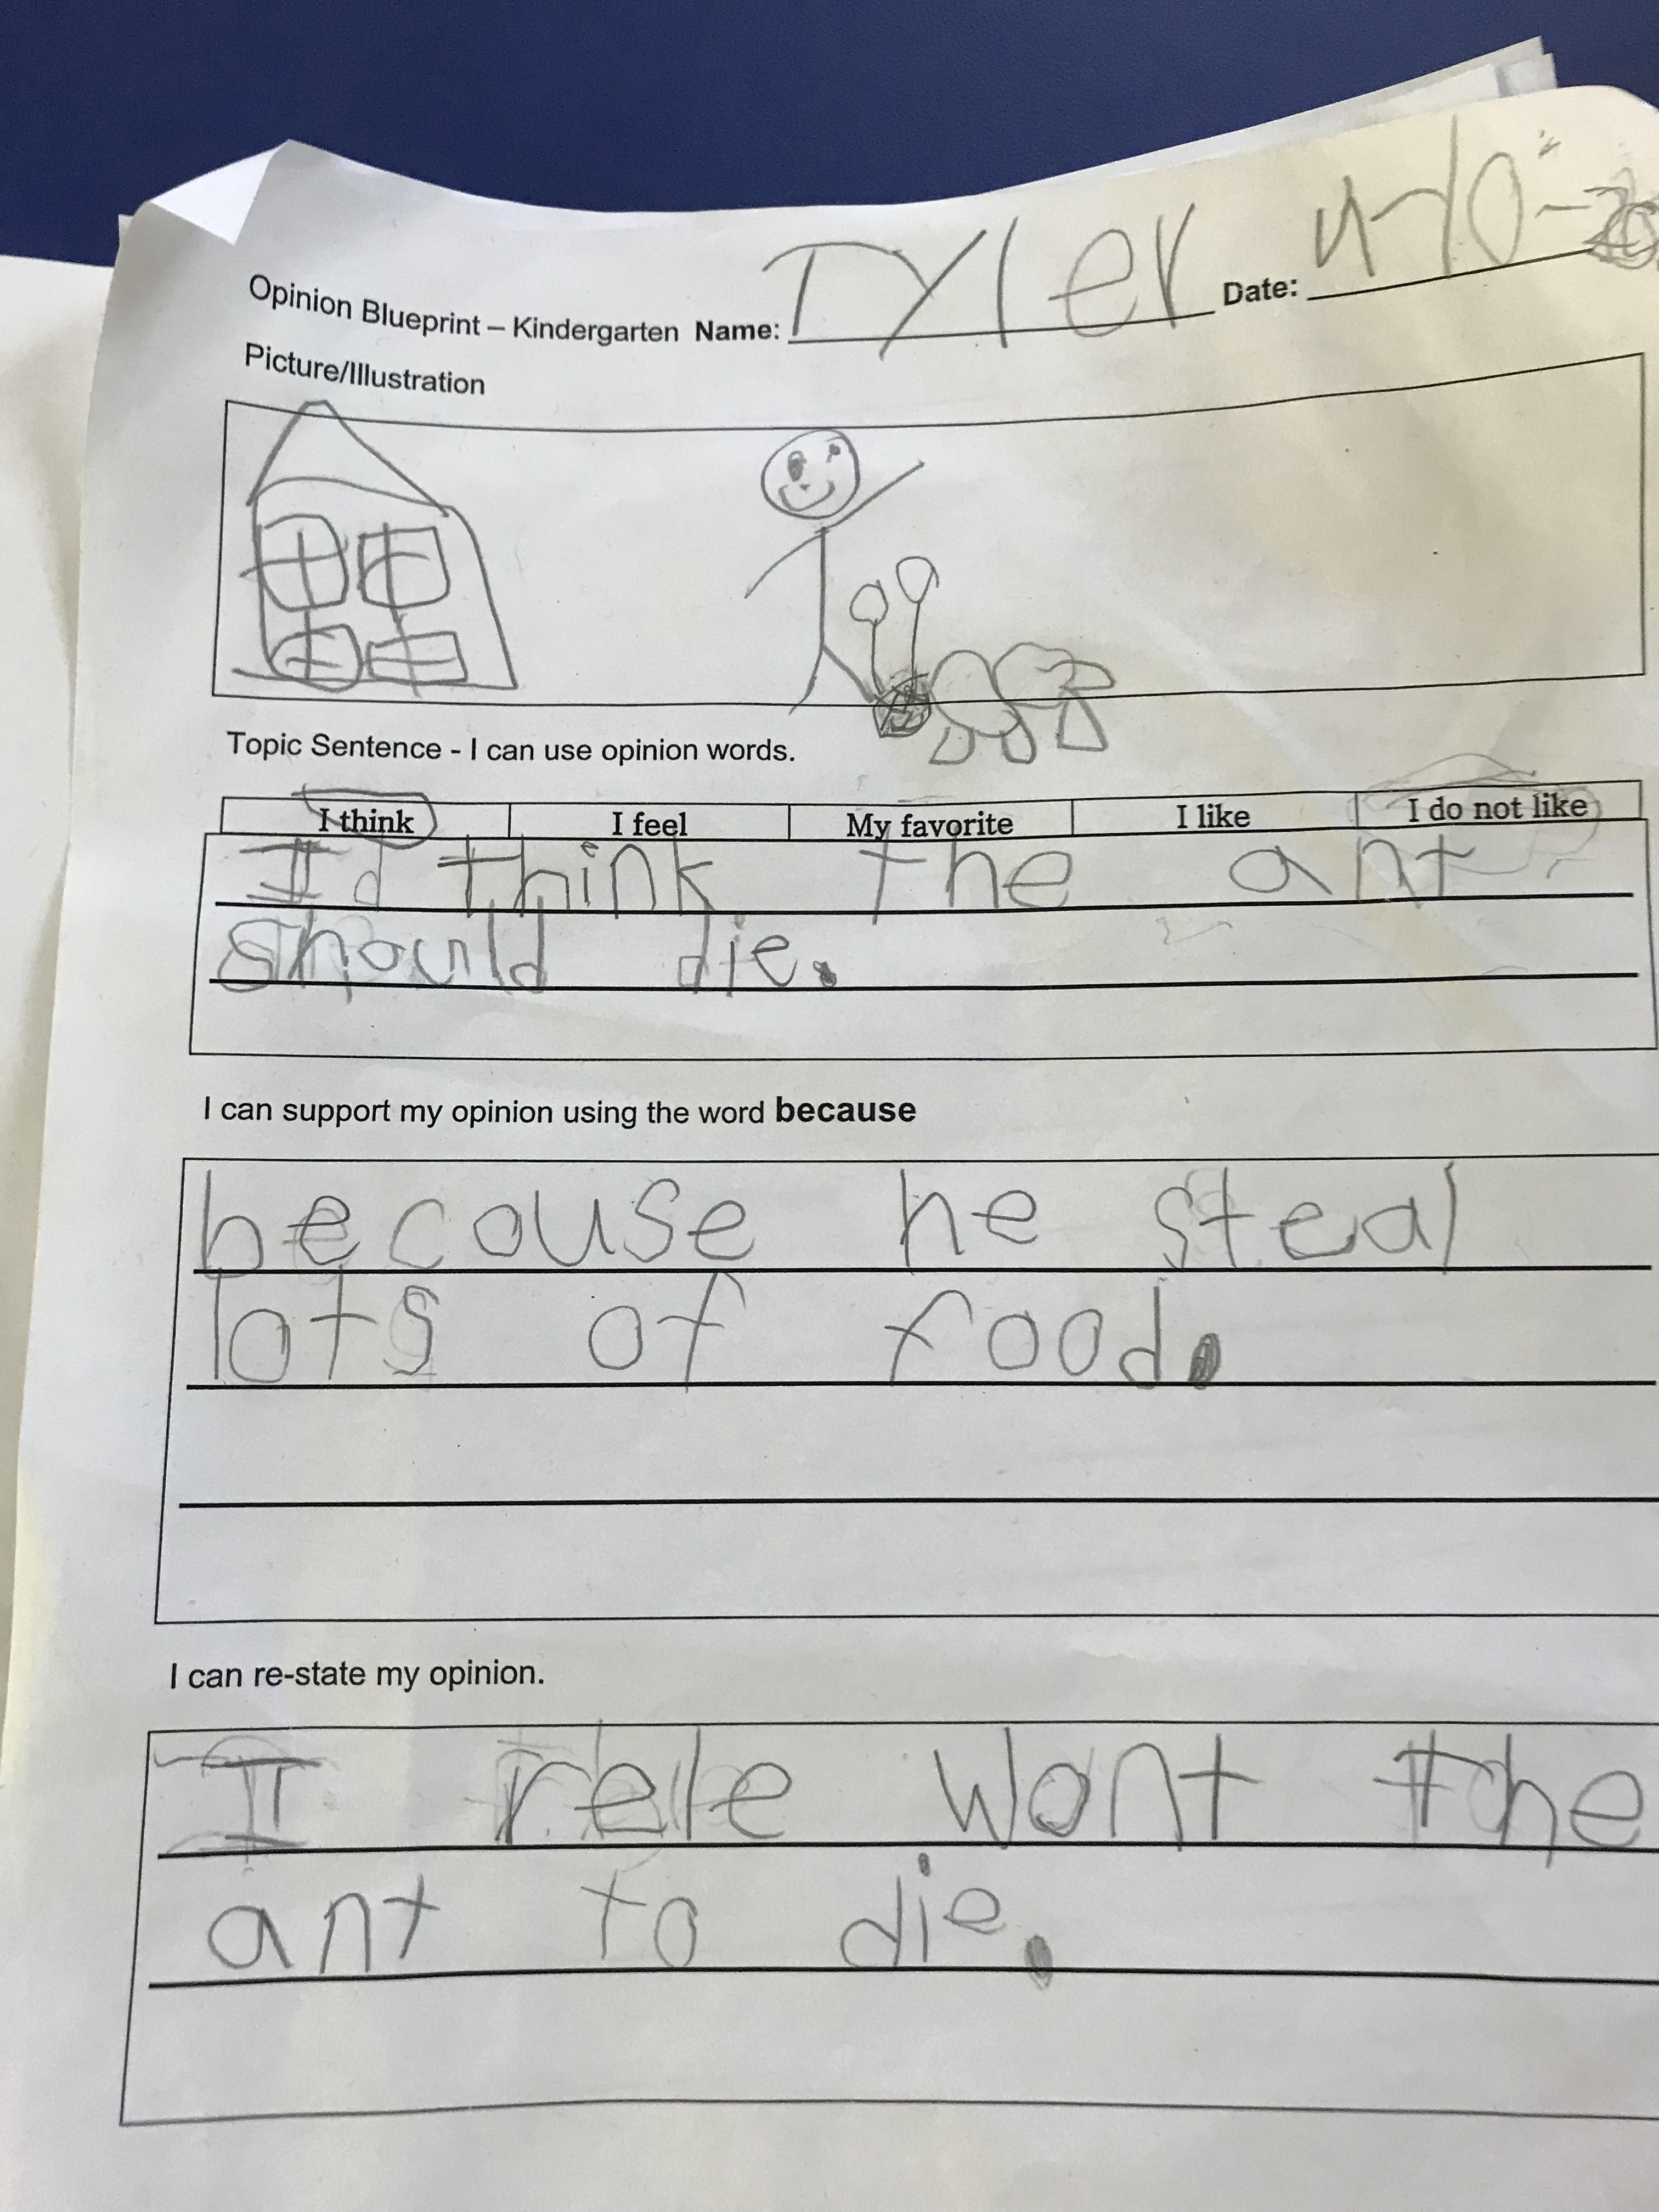 Opinion Blueprint – Kindergarten Name: Tyler Date:
Picture/Illustration
Topic Sentence - I can use opinion words.
I think I feel My favorite I like I do not like
I think the ant
should die.
I can support my opinion using the word because
becouse he steal
lots of food.
I can re-state my opinion.
I rele wont the
ant to die.